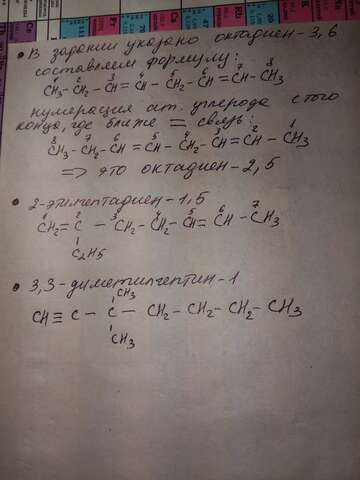 • В задании указано октадиен-3,6
составляем формулу:
1 2 3 4 5 6 7 8
CH3-CH2-CH=CH-CH2-CH=CH-CH3
нумерация ат. углерода с того
конца, где ближе = связь:
8 7 6 5 4 3 2 1
CH3-CH2-CH=CH-CH2-CH=CH-CH3
⇒ это октадиен-2,5
• 2-этилгептадиен-1,5
1 2 3 4 5 6 7
CH2=C-CH2-CH2-CH=CH-CH3
C2H5
• 3,3-диметилгептин-1
CH3
CH≡C-C-CH2-CH2-CH2-CH3
CH3